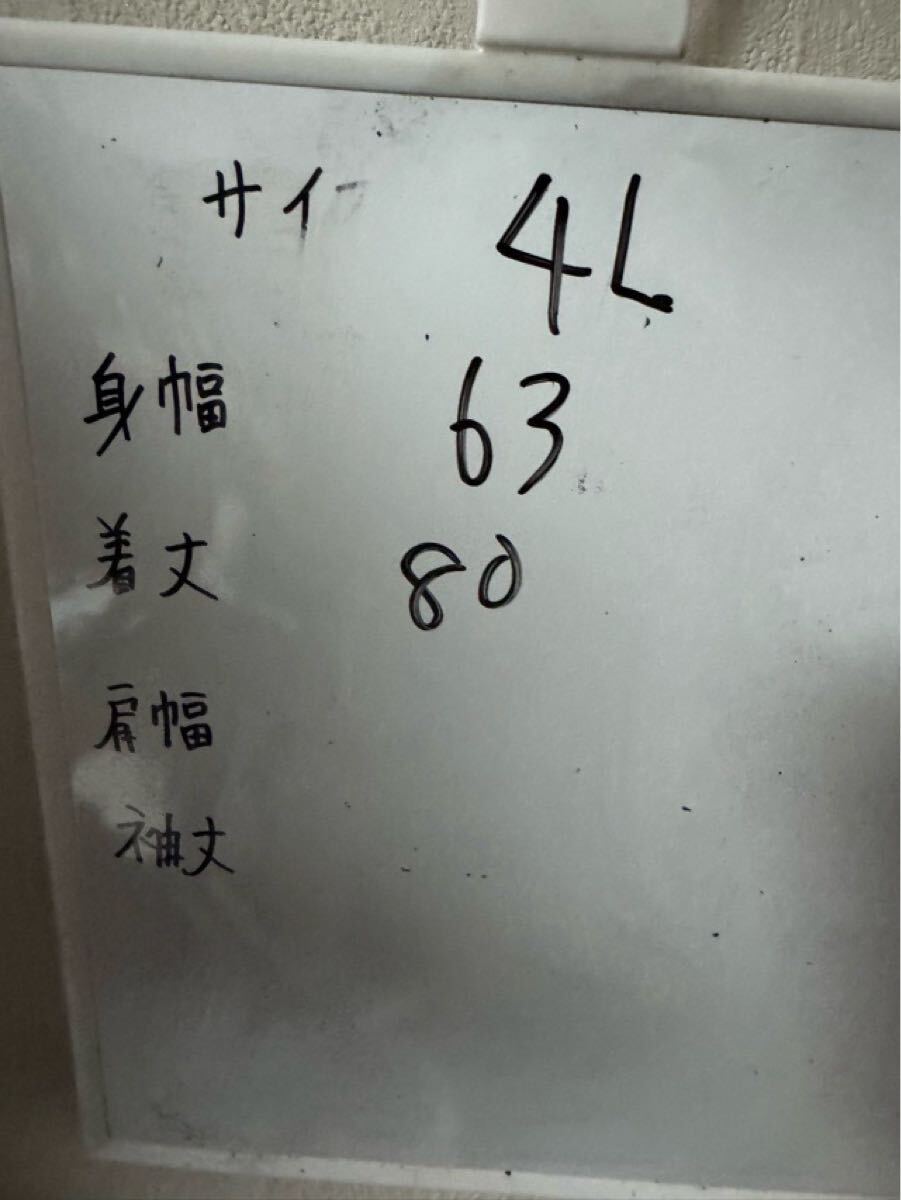 サイ 4L
身幅 63
着丈 80
肩幅
袖丈